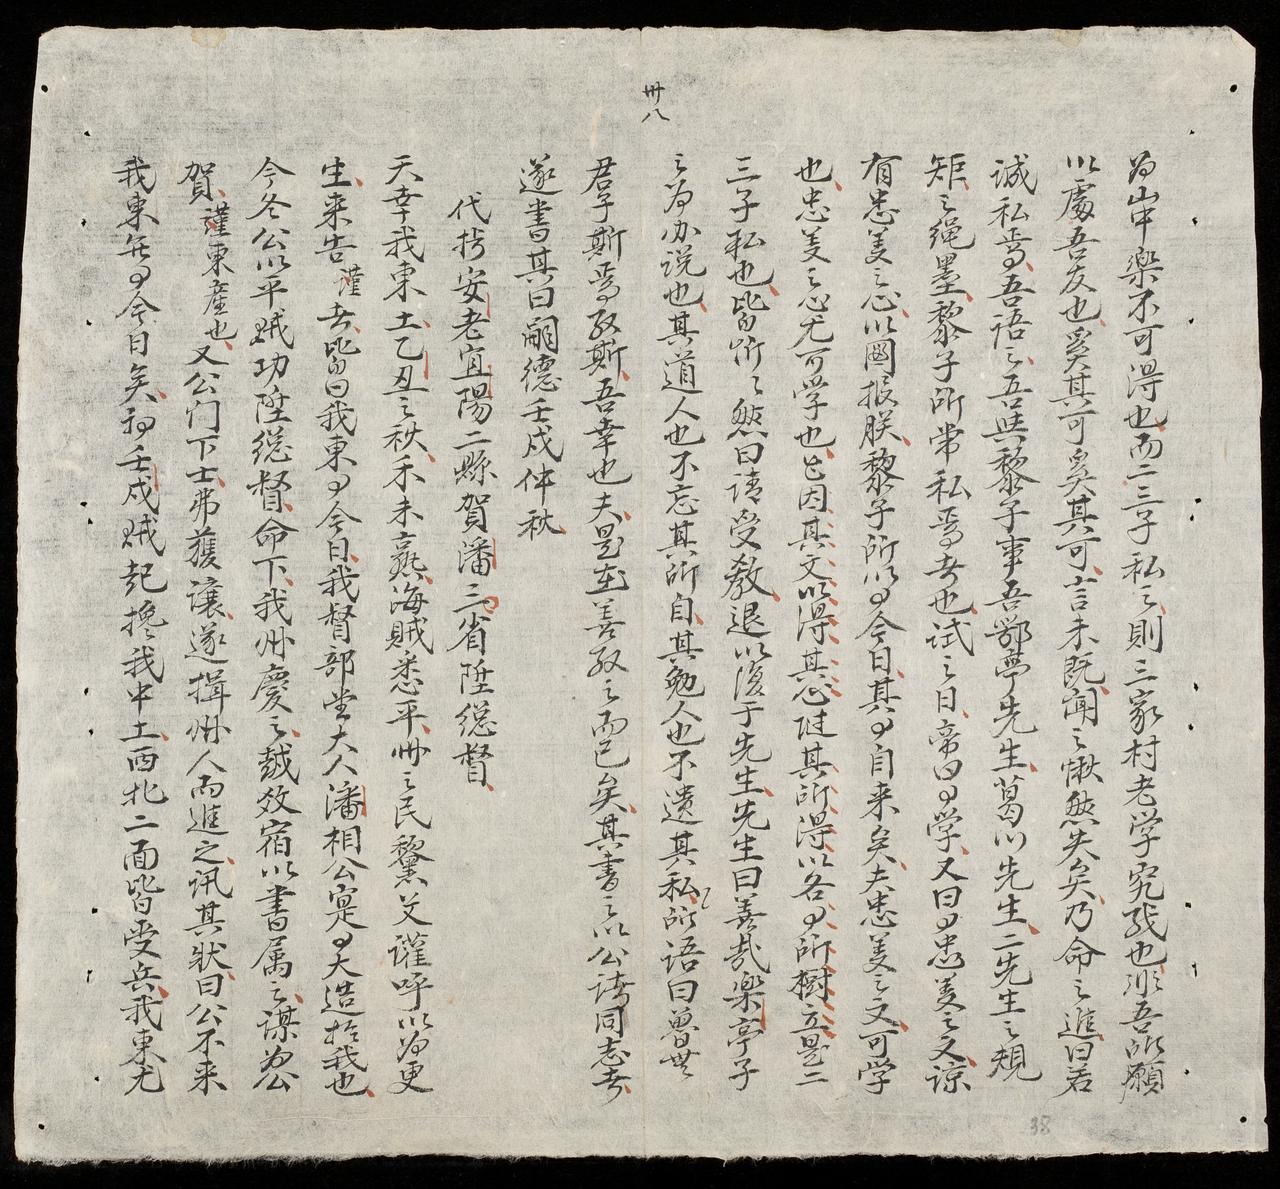 卅八
為山中樂不可得也而二三子私之則三家村老学究残也非吾所願
以處吾友也奚其可奚其可言未既闻之愀然失矣乃命之進曰若
誠私焉吾語之吾與黎子事吾鄂亭先生葛川先生二先生之規
矩之绳墨黎子所常私焉者也试之日帝曰学又曰忠爱之文谅
有忠爱之心以國报朕黎子所以今日其自来矣夫忠爱之文可学
也忠爱之心尤可学也因其文以得其心陡其所得以各所樹立是二
三子私也皆听之然曰请受教退以復于先生先生曰善哉樂亭子
之為办说也其道人也不忘其所自其勉人也不遗其私所语曰魯無
君子斯焉取斯吾幸也夫是在善取之而已矣其書之以公諸同志者
遂書其曰嗣德壬戌仲秋
代抄安老宜陽二縣賀潘三省陞総督
天幸我東土乙丑之秋禾未熟海贼悉平州之民黎父讙呼以為更
生来告謹者皆曰我東今日我督部堂大人潘相公寔大造於我也
今冬公以平贼功陞総督命下我州慶之越效宿以書属之謀為公
賀謹東産也又公门下士弗獲讓遂揖州人而進之讯其狀曰公不来
我東無今日矣初壬戌贼起擾我中土西北二面皆受兵我東尤
38